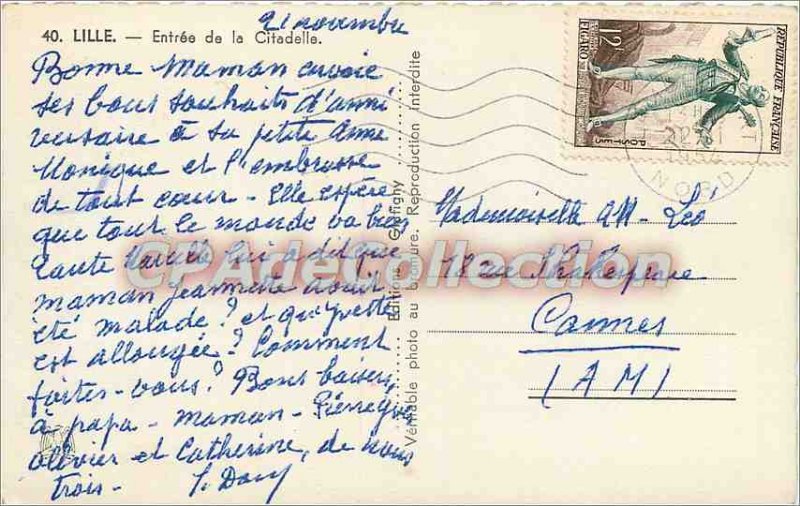 21 novembre
40. LILLE. — Entrée de la Citadelle.
Bonne Maman envoie
ses bons souhaits d'anni
versaire à sa petite Anne
Monique et l'embrasse
de tout cœur - Elle espère
que tout le monde va bien
Tante lui a dit que
maman Jeannette avait
été malade? et qu'
est allongée? Comment
faites-vous? Bons baisers
à papa - maman -
Olivier et Catherine, de nous
trois -
Editions Gaffighy
Véritable photo au bromure. Reproduction interdite
12F
FIGARO
RÉPUBLIQUE FRANÇAISE
POSTES
NORD
Mademoiselle AM - Léo
18 rue Shakespeare
Cannes
(AM)
CPArteCollection